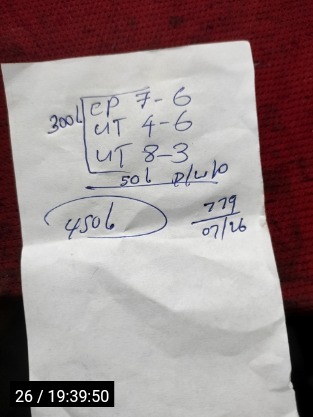 300L CP 7-6
UT 4-6
UT 8-3
50L P/u/o
450L
779
07/26
26 / 19:39:50